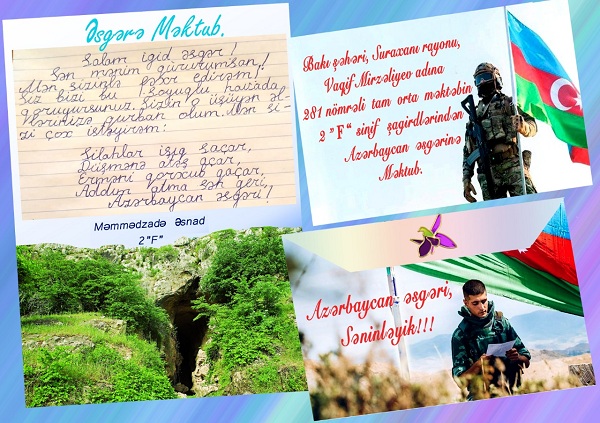 Əsgərə Məktub.
Salam igid əsgər!
Sən mənim qürurumsan!
Mən sizinlə fəxr edirəm!
Siz bizi bu soyuqlu havada
qoruyursunuz. Sizin o üşüyən əl-
lərinizə qurban olum. Mən si-
zi çox istəyirəm!
Silahlar işıq saçar,
Düşmənə atəş açar,
Erməni qorxub qaçar,
Addım atma sən geri,
Azərbaycan əsgəri!
Məmmədzadə Əsnad
2"F"
Bakı şəhəri, Suraxanı rayonu,
Vaqif Mirzəliyeo adına
281 nömrəli tam orta məktəbin
2 "F" sinif şagirdlərindən
Azərbaycan əsgərinə
Məktub.
Azərbaycan əsgəri,
Səninləyik!!!